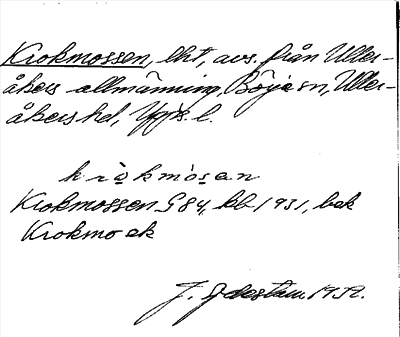 Krokmossen, lht, avs. från Uller-
åkers allmänning, Börje sn, Uller-
åkers hd, Upps. l.
krokmosan
Krokmossen G 84, kb 1931, bek
Krokmo ek
J. 1932.